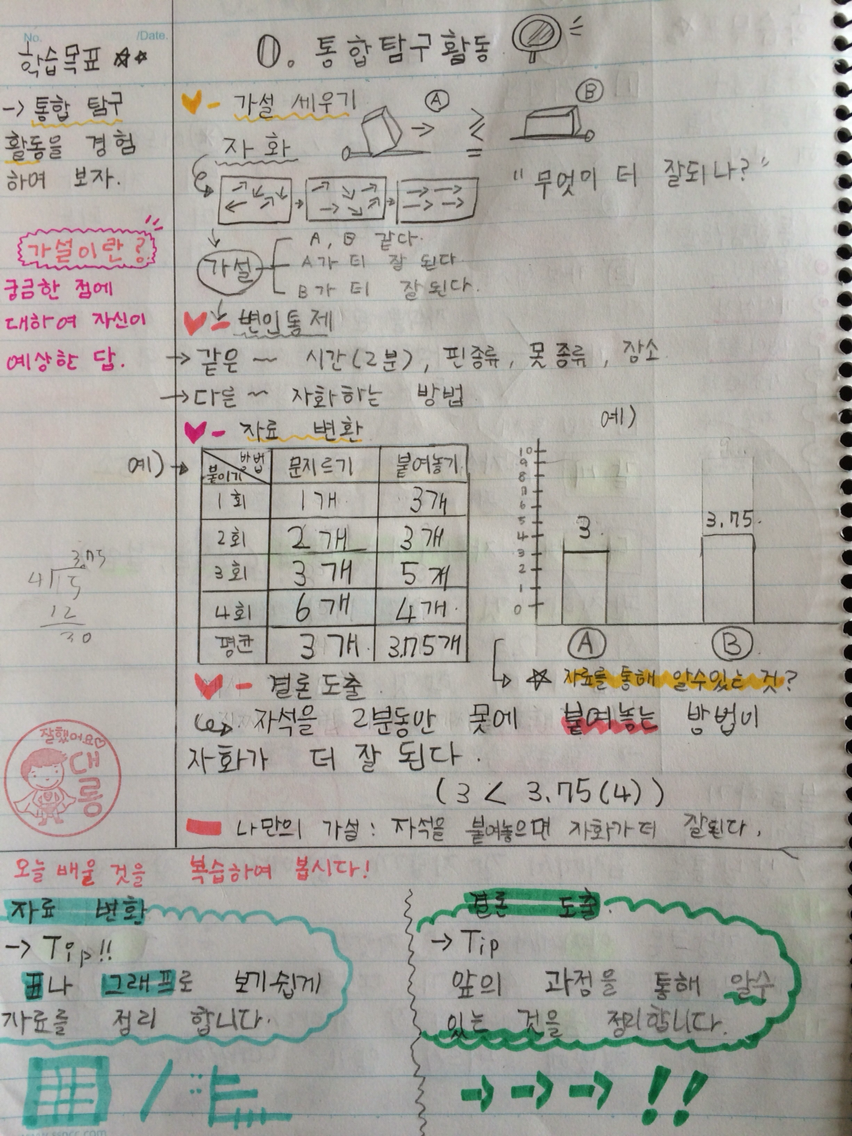 No.
/Date.
학습목표 ☆★★
-> 통합 탐구
활동을 경험
하여 보자.
가설이란?
궁금한 점에
대하여 자신이
예상한 답.
0. 통합탐구활동
- 가설 세우기
A
B
자화
"무엇이 더 잘되나?"
가설
A, B 같다.
A가 더 잘 된다
B가 더 잘 된다.
- 변인통제
→ 같은 ~ 시간(2분), 핀종류, 못종류, 장소
→ 다른 ~ 자화하는 방법
- 자료 변환
예) →
방법
붙이기
문지르기 붙여놓기
1회 1개 3개
2회 2개 3개
3회 3개 5개
4회 6개 4개.
평균 3개 3.75개
예)
10
9
8
7
6
5
4
3
2
1
0
3
3.75
A B
3.75
4 15
12
30
☆ 자료를 통해 알수있는 것?
- 결론 도출
자석을 2분동안 못에 붙여놓는 방법이
자화가 더 잘 된다.
(3 < 3.75(4))
나만의 가설 : 자석을 붙여놓으면 자화가 더 잘된다.
잘했어요♡
대롱
오늘 배울 것을 복습하여 봅시다!
자료 변환
→ Tip!!
표나 그래프로 보기쉽게
자료를 정리 합니다.
결론 도출.
→ Tip
앞의 과정을 통해 알수
있는 것을 정리합니다.
→ → → !!